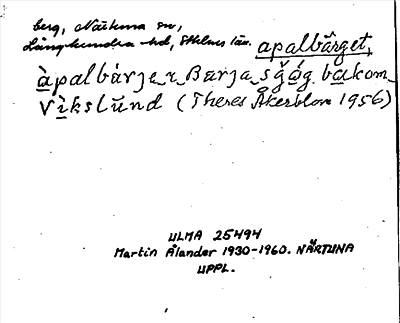 berg, Närtuna sn,
Långhundra hd, Sthlms län. apalbärget,
àpalbàrjeṭ, Barja, sg̊ǫg bakom
Vìkslŭnd (Theres Åkerblom 1956)
ULMA 25494
Martin Ålander 1930-1960. NÄRTUNA
UPPL.